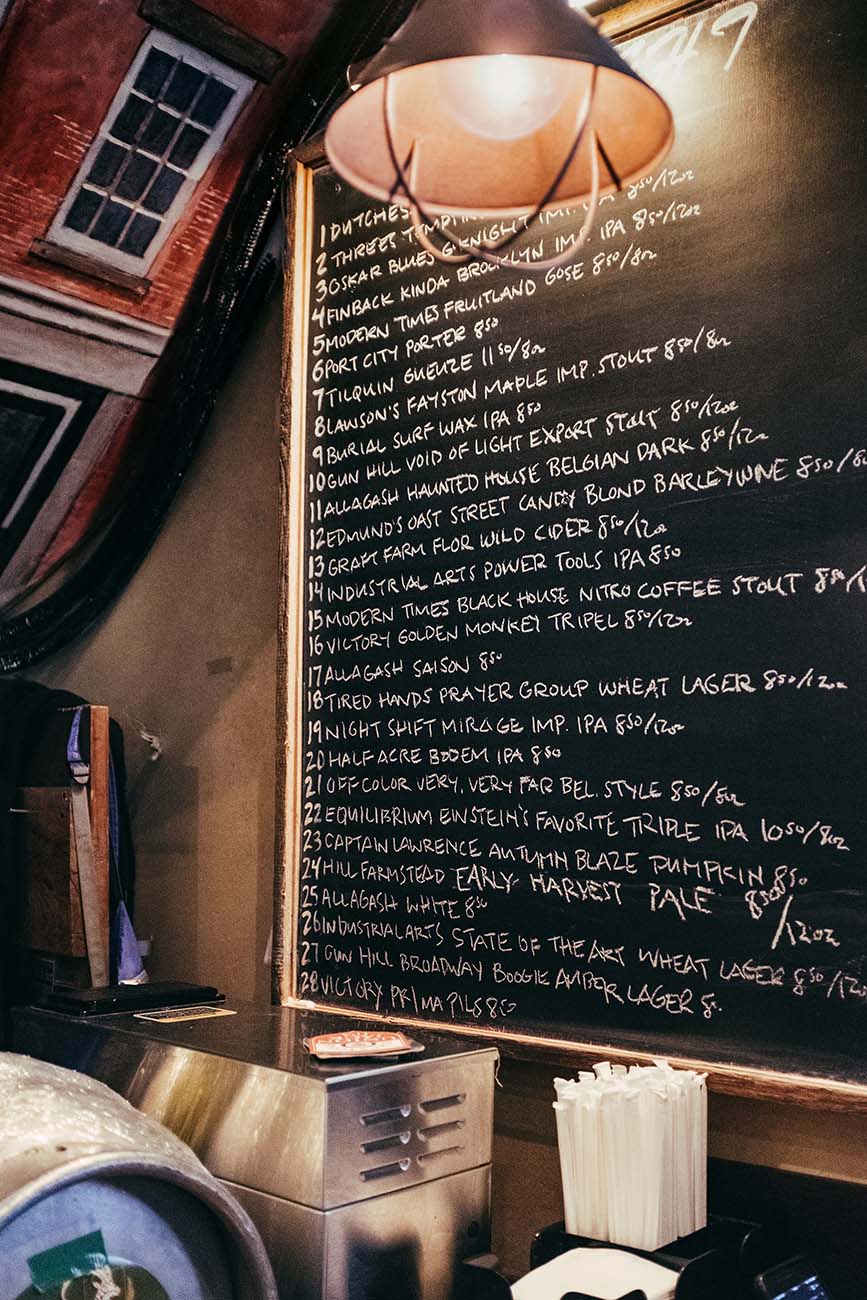 1 DUTCHES 850/12oz
2 THREES IPA 850/12oz
3 OSKAR BLUES G'KNIGHT IMP. IPA 850/12oz
4 FINBACK KINDA BROOKLYN IMP. IPA 850/12oz
5 MODERN TIMES FRUITLAND GOSE 850/8oz
6 PORT CITY PORTER 850
7 TILQUIN GUEUZE 1150/8oz
8 LAWSON'S FAYSTON MAPLE IMP. STOUT 850/8oz
9 BURIAL SURF WAX IPA 850
10 GUN HILL VOID OF LIGHT EXPORT STOUT 850/12oz
11 ALLAGASH HAUNTED HOUSE BELGIAN DARK 850/12oz
12 EDMUND'S OAST STREET CANDY BLOND BARLEYWINE 850/8
13 GRAFT FARM FLOR WILD CIDER 850/12oz
14 INDUSTRIAL ARTS POWER TOOLS IPA 850
15 MODERN TIMES BLACK HOUSE NITRO COFFEE STOUT 850/1
16 VICTORY GOLDEN MONKEY TRIPEL 850/12oz
17 ALLAGASH SAISON 850
18 TIRED HANDS PRAYER GROUP WHEAT LAGER 850/12oz
19 NIGHT SHIFT MIRAGE IMP. IPA 850/12oz
20 HALF ACRE BODEM IPA 850
21 OFF COLOR VERY, VERY FAR BEL. STYLE 850/8oz
22 EQUILIBRIUM EINSTEIN'S FAVORITE TRIPLE IPA 1050/8oz
23 CAPTAIN LAWRENCE AUTUMN BLAZE PUMPKIN 850
24 HILL FARMSTEAD EARLY HARVEST PALE 850/12oz
25 ALLAGASH WHITE 850
26 INDUSTRIAL ARTS STATE OF THE ART WHEAT LAGER 850/12oz
27 GUN HILL BROADWAY BOOGIE AMBER LAGER 8
28 VICTORY PRIMA PILS 850